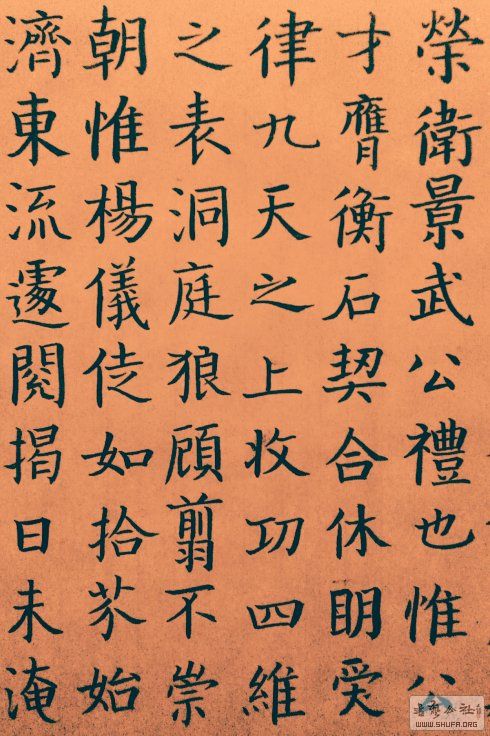 榮衛景武公禮也惟公
才膺衡石契合休眀爰
律九天之上收功四維
之表洞庭狼顧剪不崇
朝惟楊儀徒如拾芥始
濟東流遽閱揭日未淹
WWW.SHUFA.ORG